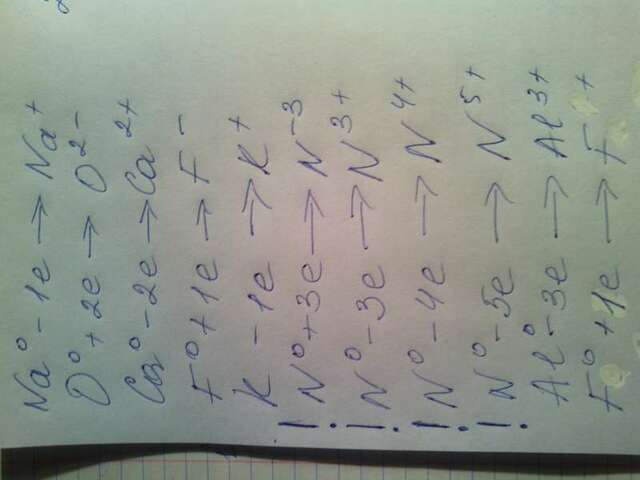 Na⁰ - 1e → Na⁺
O⁰ + 2e → O²⁻
Ca⁰ - 2e → Ca²⁺
F⁰ + 1e → F⁻
K - 1e → K⁺
! N⁰ + 3e → N⁻³
! N⁰ - 3e → N³⁺
! N⁰ - 4e → N⁴⁺
! N⁰ - 5e → N⁵⁺
Al⁰ - 3e → Al³⁺
F⁰ + 1e → F